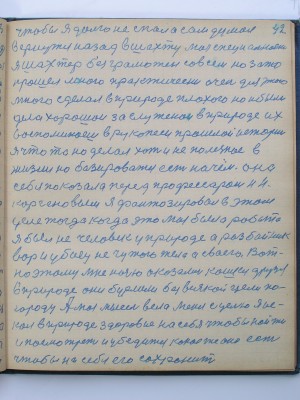 42
чтобы я долго не спал а сам думал
вернути назад в шахту моя специальность
я шахтер безграмотен совсем но зато
прошел много практически очен для этого
много сделал в природе плохого но и были
дела хорошом заслужено в природе их
воспоминаеш в рукописи прошлой истории
я что то но делал хотя и не полезное в
жизни но базировати есть на чём. она
себя показала перед профессором Н. Н.
я фантозировал в этом
деле тогда когда это моя была робота
я был не человек у природе а разбойник
вор и убоец не чужого тело а своего. Вот-
поэтому мне ногу оказали кошки друзя
в природе они бурьян без всякой цели по-
городу А моя мысел вела меня с целю я ис-
кал в природе здоровье на себя чтобы найти
и посмотрет и убедити какое же оно ест
чтобы на себя его сохранит